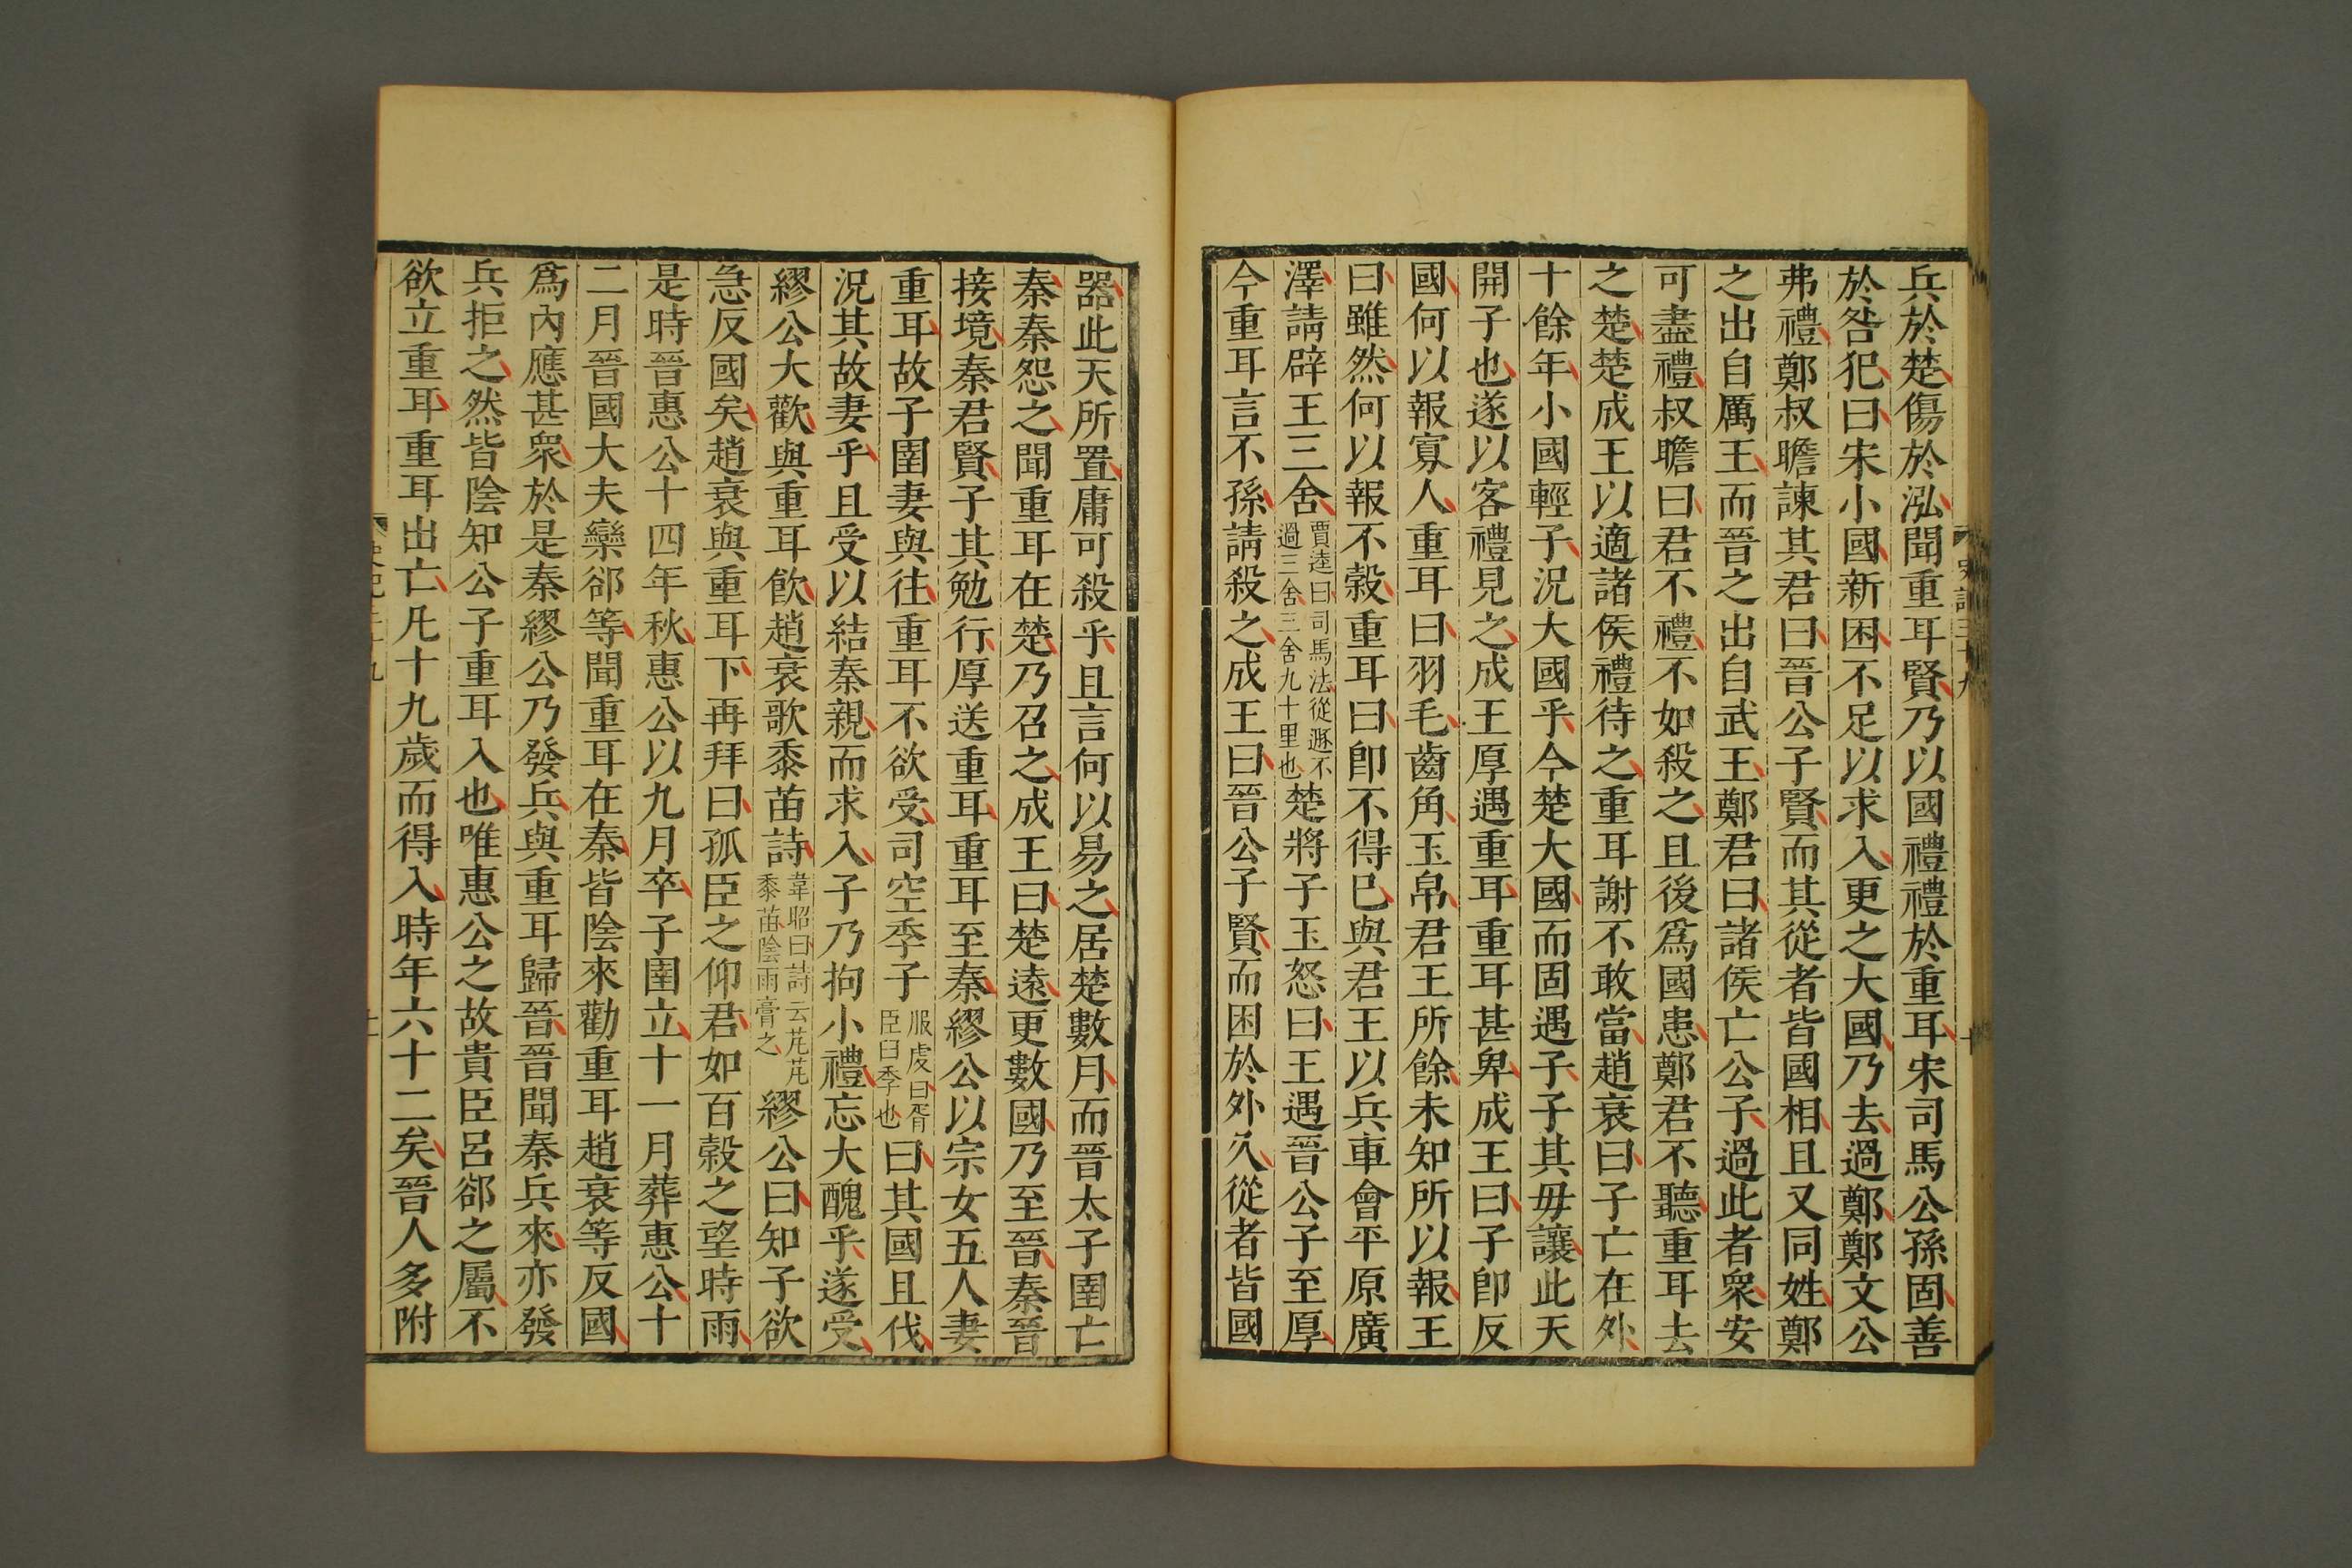 兵於楚傷於泓聞重耳賢乃以國禮禮於重耳宋司馬公孫固善
於咎犯曰宋小國新困不足以求入更之大國乃去過鄭鄭文公
弗禮鄭叔瞻諫其君曰晉公子賢而其從者皆國相且又同姓鄭
之出自厲王而晉之出自武王鄭君曰諸侯亡公子過此者衆安
可盡禮叔瞻曰君不禮不如殺之且後爲國患鄭君不聽重耳去
之楚楚成王以適諸侯禮待之重耳謝不敢當趙衰曰子亡在外
十餘年小國輕子況大國乎今楚大國而固遇子子其毋讓此天
開子也遂以客禮見之成王厚遇重耳重耳甚卑成王曰子卽反
國何以報寡人重耳曰羽毛齒角玉帛君王所餘未知所以報王
曰雖然何以報不穀重耳曰卽不得已與君王以兵車會平原廣
澤請辟王三舍賈逵曰司馬法從遯不過三舍三舍九十里也楚將子玉怒曰王遇晉公子至厚
今重耳言不孫請殺之成王曰晉公子賢而困於外久從者皆國
史記三十九
十
器此天所置庸可殺乎且言何以易之居楚數月而晉太子圉亡
秦秦怨之聞重耳在楚乃召之成王曰楚遠更數國乃至晉秦晉
接境秦君賢子其勉行厚送重耳重耳至秦繆公以宗女五人妻
重耳故子圉妻與往重耳不欲受司空季子服虔曰胥臣臼季也曰其國且伐
況其故妻乎且受以結秦親而求入子乃拘小禮忘大醜乎遂受
繆公大歡與重耳飮趙衰歌黍苗詩韋昭曰詩云芃芃黍苗陰雨膏之繆公曰知子欲
急反國矣趙衰與重耳下再拜曰孤臣之仰君如百穀之望時雨
是時晉惠公十四年秋惠公以九月卒子圉立十一月葬惠公十
二月晉國大夫欒郤等聞重耳在秦皆陰來勸重耳趙衰等反國
爲內應甚衆於是秦繆公乃發兵與重耳歸晉晉聞秦兵來亦發
兵拒之然皆陰知公子重耳入也唯惠公之故貴臣呂郤之屬不
欲立重耳重耳出亡凡十九歲而得入時年六十二矣晉人多附